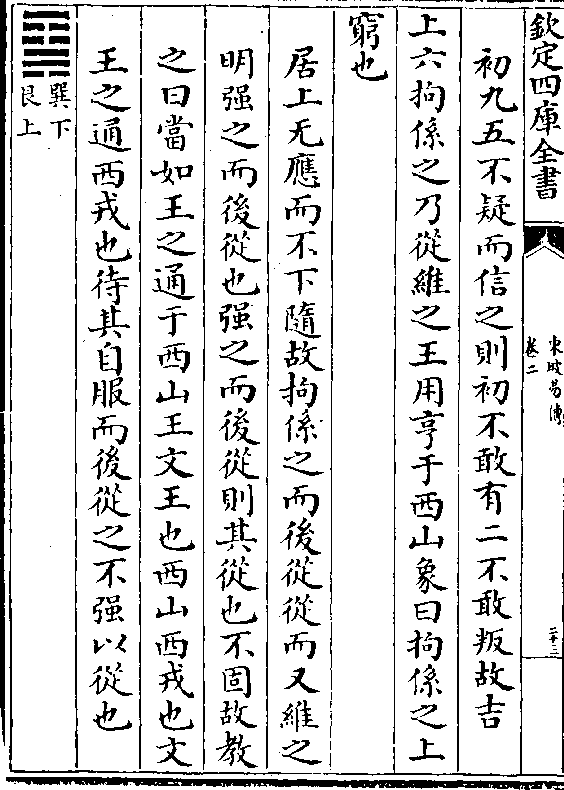 欽定四庫全書
東坡易傳
卷二
二十三
初九五不疑而信之則初不敢有二不敢叛故吉
上六拘係之乃從維之王用亨于西山象曰拘係之上
窮也
居上无應而不下隨故拘係之而後從從而又維之
明强之而後從也强之而後從則其從也不固故教
之曰當如王之通于西山王文王也西山西戎也文
王之通西戎也待其自服而後從之不强以從也
巽下
艮上